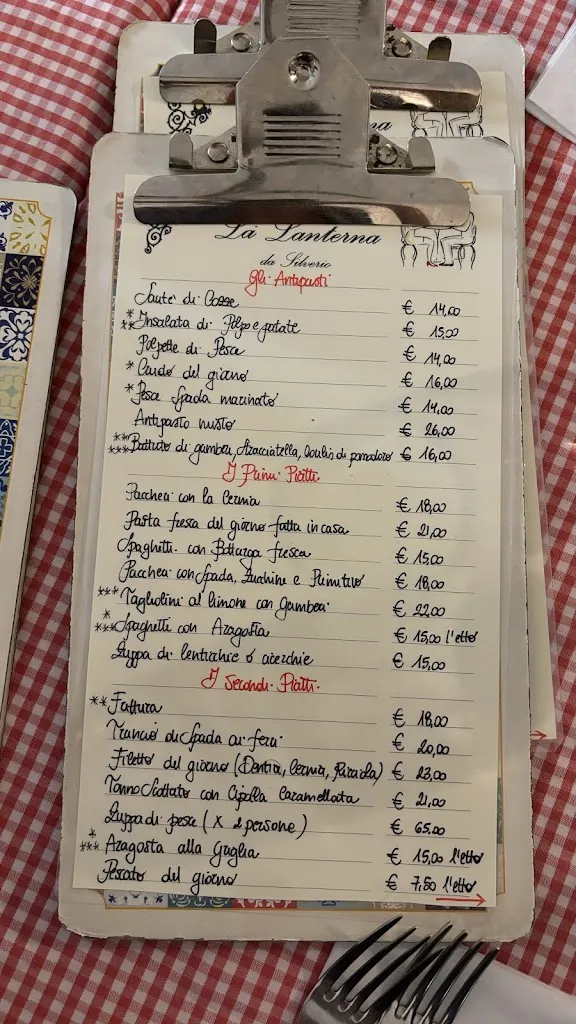 na
La Lanterna
da Silverio
Gli Antipasti
Sautè di Cozze € 14,00
* ** Insalata di Polpo e patate € 15,00
Polpette di Pesce € 14,00
* Crudo del giorno € 16,00
* Pesce Spada marinato € 14,00
Antipasto misto € 26,00
** *** Battuto di gamberi, Stracciatella, Coulis di pomodoro € 16,00
I Primi Piatti
Paccheri con la Cernia € 18,00
Pasta fresca del giorno fatta in casa € 21,00
Spaghetti con Bottarga fresca € 15,00
Paccheri con Spada, Zucchine e Primitivo € 18,00
*** Tagliolini al limone con Gamberi € 22,00
* *** Spaghetti con Aragosta € 15,00 l'etto
Zuppa di lenticchie o cicerchie € 15,00
I Secondi Piatti
** Frittura € 18,00
Trancio di Spada ai ferri € 20,00
Filetto del giorno (Dentice, Cernia, Ricciola) € 23,00
Tonno Scottato con Cipolla Caramellata € 21,00
Zuppa di pesce (x 2 persone) € 65,00
* *** Aragosta alla Griglia € 15,00 l'etto
Pescato del giorno € 7,50 l'etto